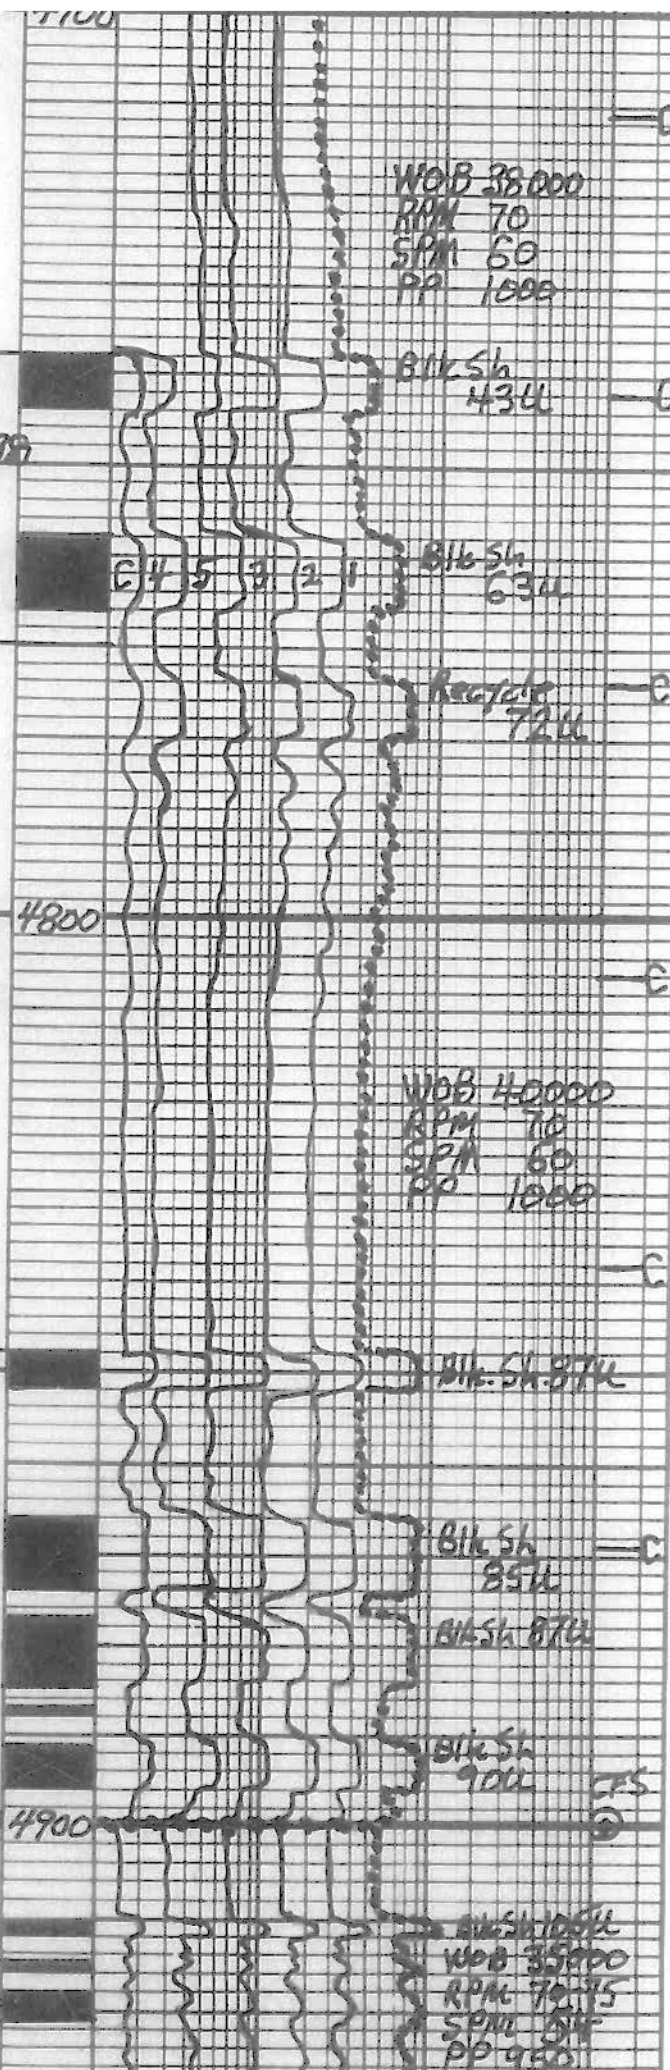 4700
C
WOB 38000
RPM 70
SPM 60
PP 1000
Blk Sh
43u
C
Blk Sh
63u
C 4 5 3 2 1
Recycle
72u
C
4800
C
WOB 40000
RPM 70
SPM 60
PP 1000
C
Blk. Sh. 87u
Blk Sh
85u
C
Blk Sh 87u
Blk Sh
90u
CFS
4900
Blk Sh 106u
WOB 35000
RPM
SPM
PP